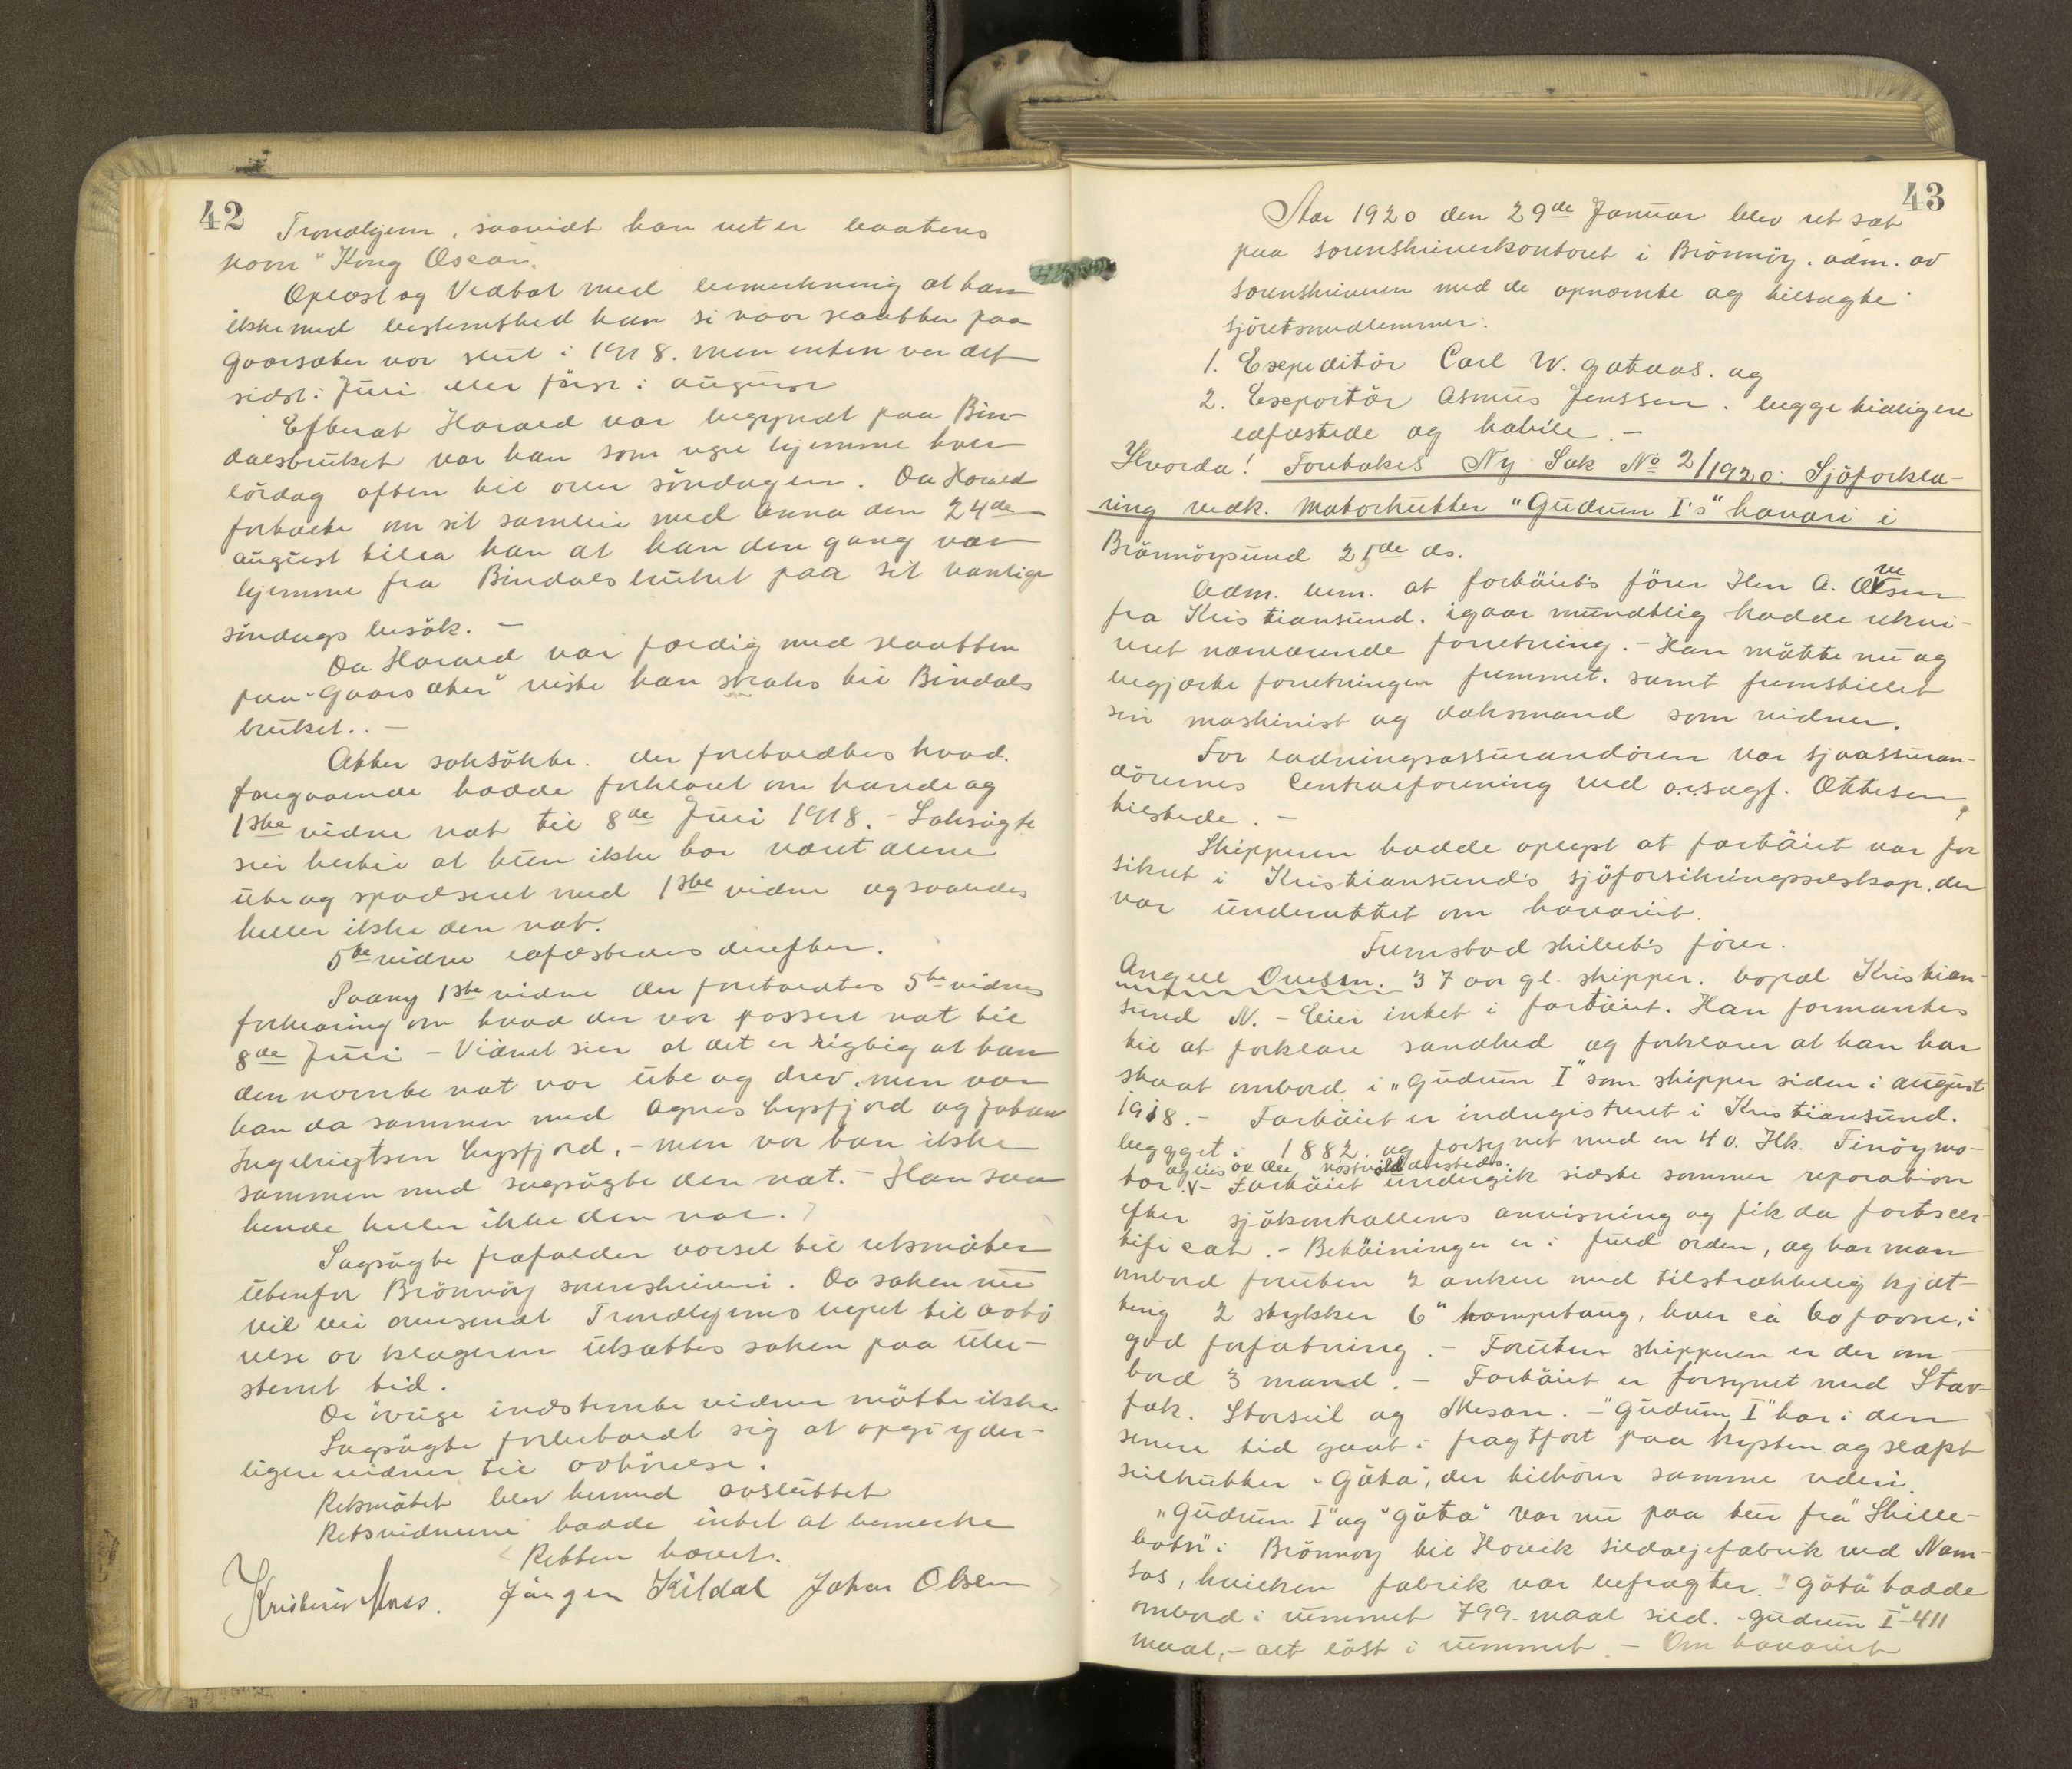 42
Trondhjem, saavidt han vet er baatens
navn "Kong Oscar".
Oplæst og Vedtat med bemerkning at han
ikke med bestemthed kan si naar slaatten paa
Gaarsæter var slut i 1918. men enten var det
sidst i Juli eller først i august
Efterat Harald var begyndt paa Bin-
dalsbruket var han som regel hjemme hver
lördag aften til over söndagen. Da Harald
fortalte om sit samleie med Anna den 24de
august tilla han at han den gang var
hjemme fra Bindalsbruket paa sit vanlige
söndags besök. –
Da Harald var færdig med slaatten
paa "Gaarsæter" reiste han straks til Bindals
bruket. . –
Atter saksökte. der foreholdtes hvad
foregaaende hadde forklaret om hende og
1ste vidne nat til 8de Juli 1918. – Saksögte
sier hertil at hun ikke har været alene
ute og spadseret med 1ste vidne og saaledes
heller ikke den nat.
5te vidne edfæstedes derefter.
Paany 1ste vidne der foreholdtes 5te vidnes
forklaring om hvad der var passert nat til
8de Juli – Vidnet sier at det er rigtig at han
den nævnte nat var ute og drev, men var
han da sammen med Agnes Lysfjord og Johan
Ingebrigtsen Lysfjord. – men var han ikke
sammen med sagsögte den nat. – Han saa
hende heller ikke den nat.
Sagsögte frafalder varsel til retsmöter
utenfor Brönnöy sorenskriveri. Da saken nu
vil bli oversendt Trondhjems byret til avhö
relse av klageren utsattes saken paa ube-
stemt tid.
De övrige indstevnte vidner mötte ikke
Sagsögte forbeholdt sig at opgi yder-
ligere vidner til avhörelse.
Retsmötet blev hermed avsluttet
Retsvidnerne hadde intet at bemerke
Retten hævet.
Jörgen Kildal Johan Olsen
43
Aar 1920 den 29de Januar blev ret sat
paa sorenskriverkontoret i Brönnöy. adm. av
sorenskriveren med de opnævnte og tilsagte
sjöretsmedlemmer:
1. Expeditör Carl W. Gataas. og
2. Exportör Asmus Jenssen. begge tidligere
edfæstede og habile. –
Hvorda! Foretokes Ny Sak No 2/1920: Sjöforkla-
ring vedk. Motorkutter "Gudrun I's" havari i
Brönnöysund 25de ds.
Adm. bem. at fartöiets förer Herr A. Ovesen
fra Kristiansund. igaar mundtlig hadde rekvi-
rert nærværende forretning. – Han mötte nu og
begjærte forretningen fremmet. samt fremstillet
sin maskinist og dæksmand som vidner.
For ladningsassurandören var sjöassuran-
dörernes Centralforening ved o.r.sagf. Ottesen
tilstede. –
Skipperen hadde oplyst at fartöiet var for
sikret i Kristiansund's sjöforsikringsselskap, der
var underrettet om havariet.
Fremstod skibet's förer.
Angell Ovesen. 37 aar gl. skipper. bopæl Kristian-
sund N. – Eier intet i fartöiet. Han formantes
til at forklare sandhed og forklarer at han har
staat ombord i "Gudrun I" som skipper siden i august
1918. – Fartöiet er indregistreret i Kristiansund.
bygget i 1882. og forsynet med en 40. Hk. Finöymo-
tor. – Fartöiet undergik sidste sommer reparation
efter sjökontrollens anvisning og fik da fartscer-
tificat. – Betöiningen er i fuld orden, og har man
ombord foruten 2 ankre med tilstrækkelig kjæt-
ting 2 stykker 6" hampetaug, hver ca 60 favne, i
god forfatning. – Foruten skipperen er der om
bord 3 mand. – Fartöiet er forsynet med Stav-
fok. Storseil og Mesan. – "Gudrun I" har i den
senere tid gaat i fragtfart paa kysten og slæpt
seilkutter "Göta", der tilhörer samme rederi.
"Gudrun I" og "Göta" var nu paa tur fra "Skille-
botn" i Brönnöy til Hovik sildoljefabrik ved Nam-
sos, hvilken fabrik var befragter. – "Göta" hadde
ombord i rummet 799 maal sild. "Gudrun I" – 411
maal, – alt löst i rummet. – Om havariet